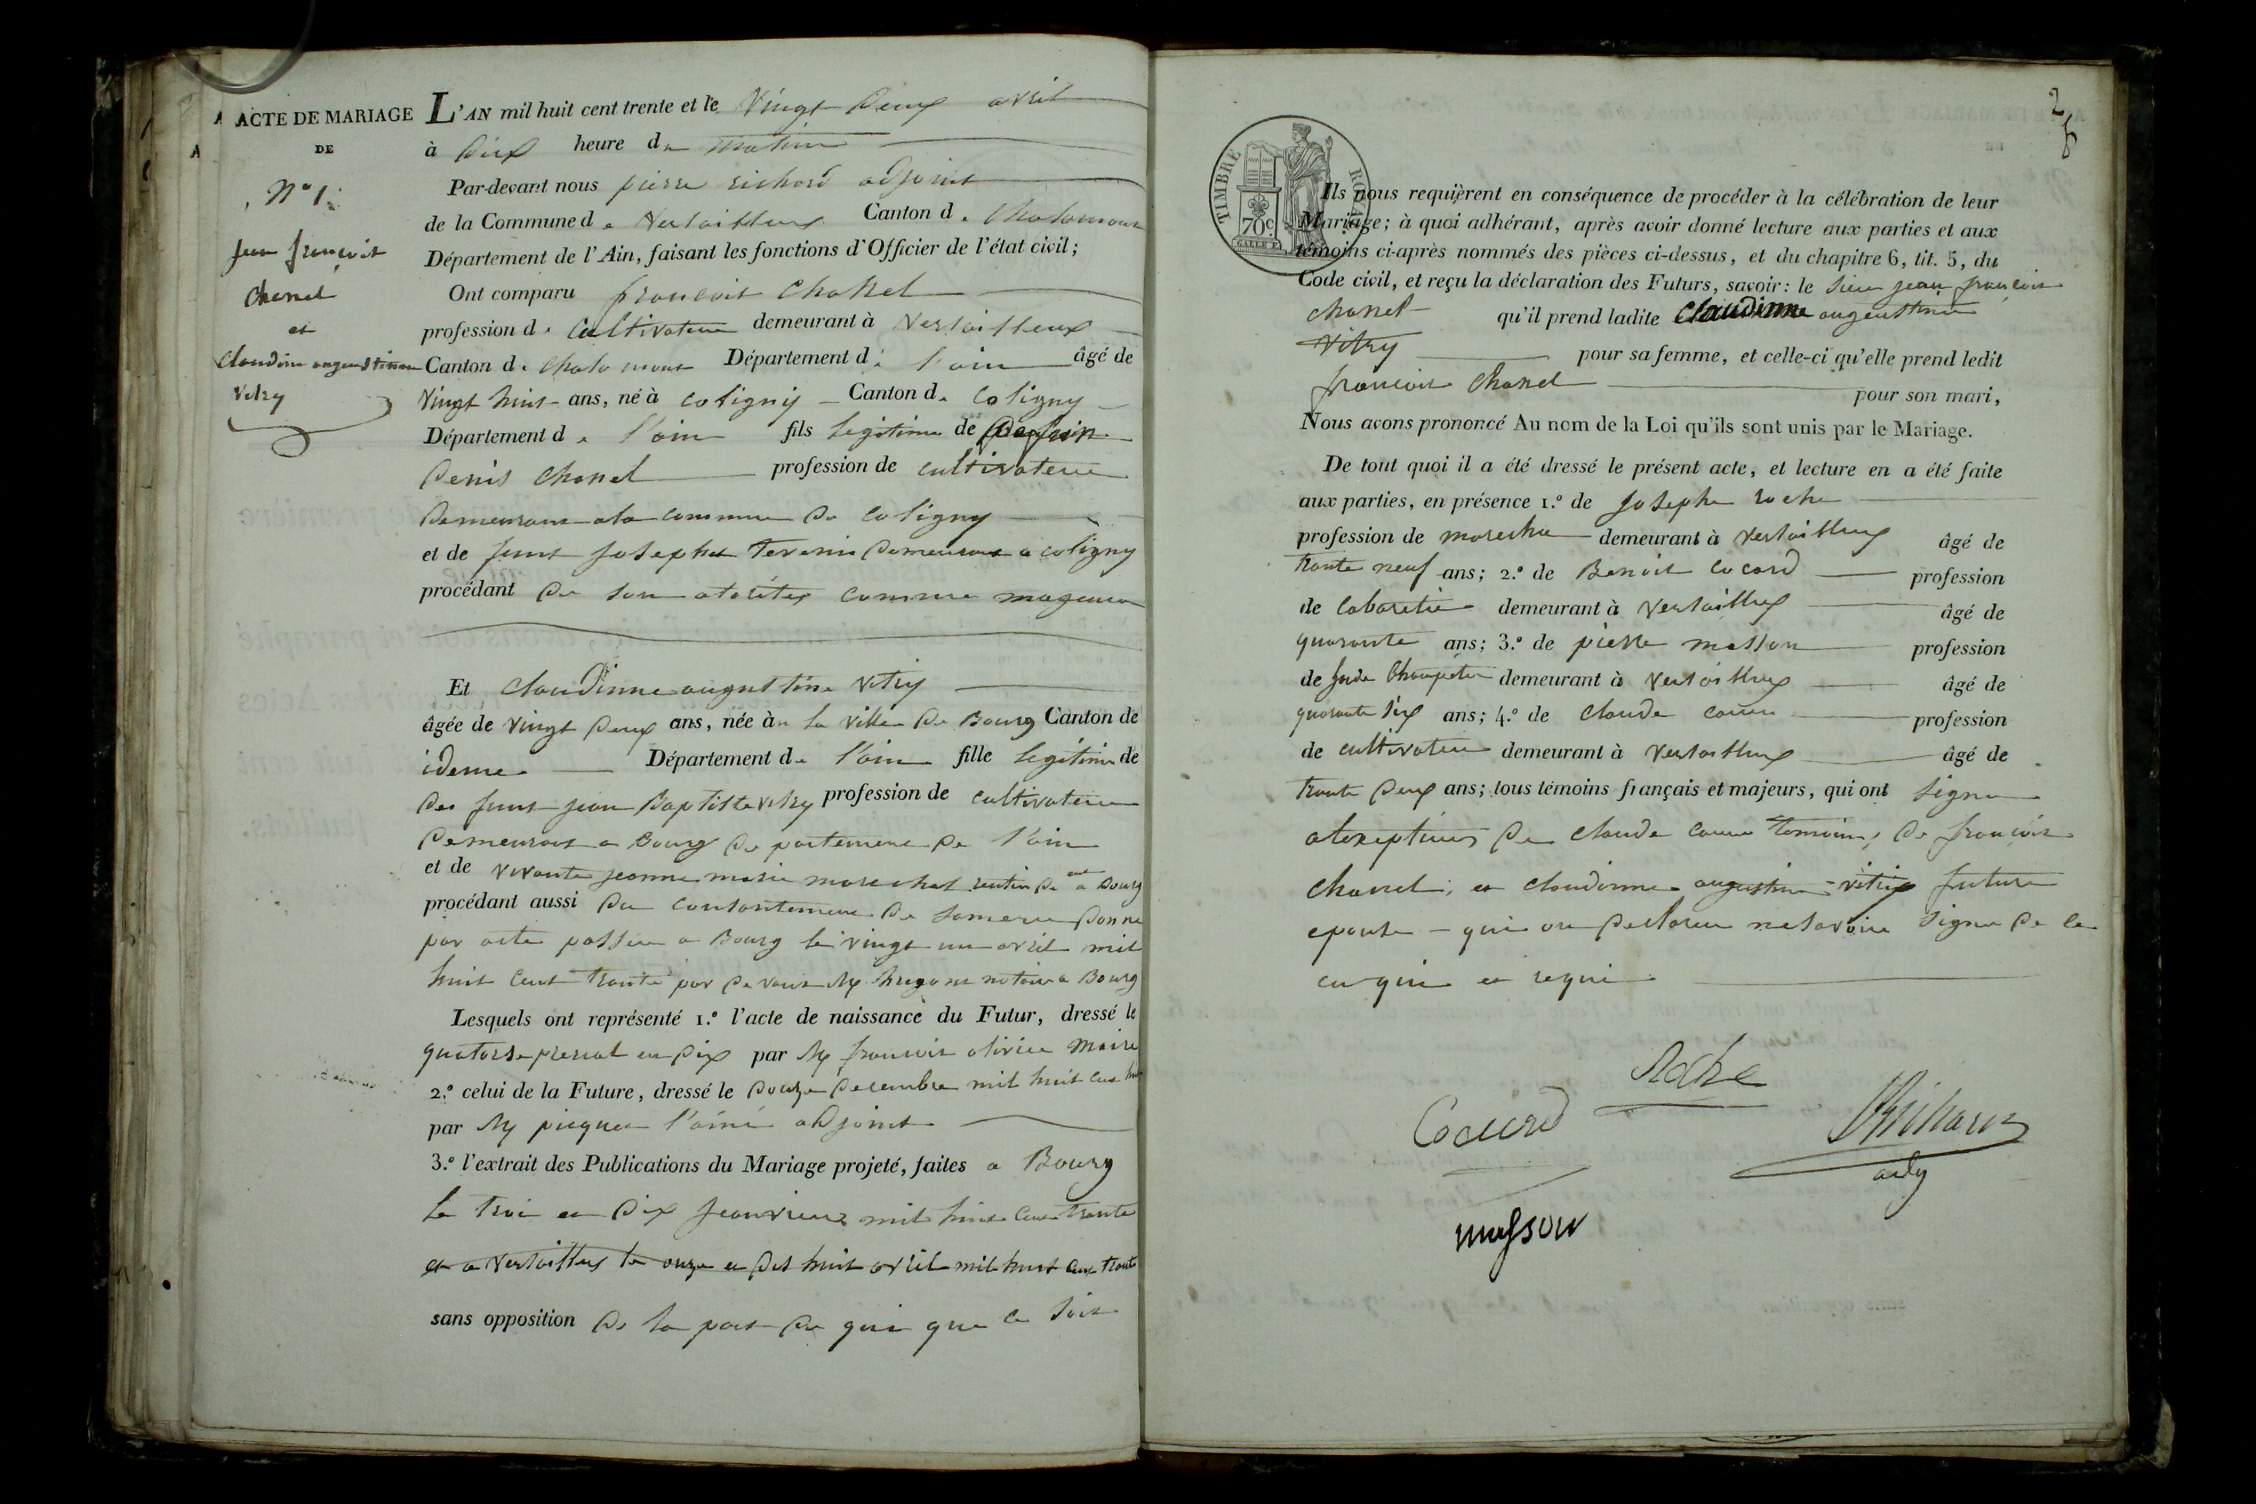 ACTE DE MARIAGE
DE
N° 1.
Jean françois
Chanel
et
Claudine augustine
Vitry
L'AN mil huit cent trente et le Vingt Deux avril
à Dix heure du matin
Par-devant nous pierre richard adjoint
de la Commune de Versailleux Canton de Chalamont
Département de l'Ain, faisant les fonctions d'Officier de l'état civil;
Ont comparu françois Chanel
profession de Cultivateur demeurant à Versailleux
Canton de Chalamont Département de l'ain âgé de
Vingt huit ans, né à coligny Canton de Coligny
Département de l'ain fils legitime de
Denis Chanel profession de cultivateur
Demeurant a la commune De Coligny
et de Josephe Demeurant a coligny
procédant De son comme
Et Claudinne augustine Vitry
âgée de Vingt Deux ans, née à la ville De Bourg Canton de
ideme Département de l'ain fille legitime de
jean Baptiste vitry profession de cultivateur
Demeurant a Bourg De partement De l'ain
et de vivante jeanne marie marechal a Bourg
procédant aussi Du De Donne
par acte passer a Bourg le vingt un avril mil
huit cent trante par De vant notaire a Bourg
Lesquels ont représenté 1.° l'acte de naissance du Futur, dressé le
quatorse an Dix par françois olivier maire
2.° celui de la Future, dressé le Douze Decembre mil huit cent
par l'ainé adjoint
3.° l'extrait des Publications du Mariage projeté, faites a Bourg
le troi et Dix mil huit cent trante
et a versailleux le onze et Dis huit avril mil huit cent trante
sans opposition De la part De qui que ce soit
2
TIMBRE ROYAL
70c.
Ils nous requièrent en conséquence de procéder à la célébration de leur
Mariage; à quoi adhérant, après avoir donné lecture aux parties et aux
témoins ci-après nommés des pièces ci-dessus, et du chapitre 6, tit. 5, du
Code civil, et reçu la déclaration des Futurs, savoir: le sieur jean françois
chanel qu'il prend ladite Claudinne
Vitry pour sa femme, et celle-ci qu'elle prend ledit
françois Chanel pour son mari,
Nous avons prononcé Au nom de la Loi qu'ils sont unis par le Mariage.
De tout quoi il a été dressé le présent acte, et lecture en a été faite
aux parties, en présence 1.° de Josephe roche
profession de demeurant à Versailleux âgé de
trante neuf ans; 2.° de Benoit Cocard profession
de Cabaretie demeurant à Versailleux âgé de
quarante ans; 3.° de pierre masson profession
de demeurant à Versailleux âgé de
quarante six ans; 4.° de Claude profession
de cultivateur demeurant à Versailleux âgé de
trante Deux ans; tous témoins français et majeurs, qui ont signe
De Claude De françois
Chanel, et Claudinne augustine vitry future
epouse qui on Declarer ne savoire signe De ce
et requi
Roche
Cocard
Richard
masson